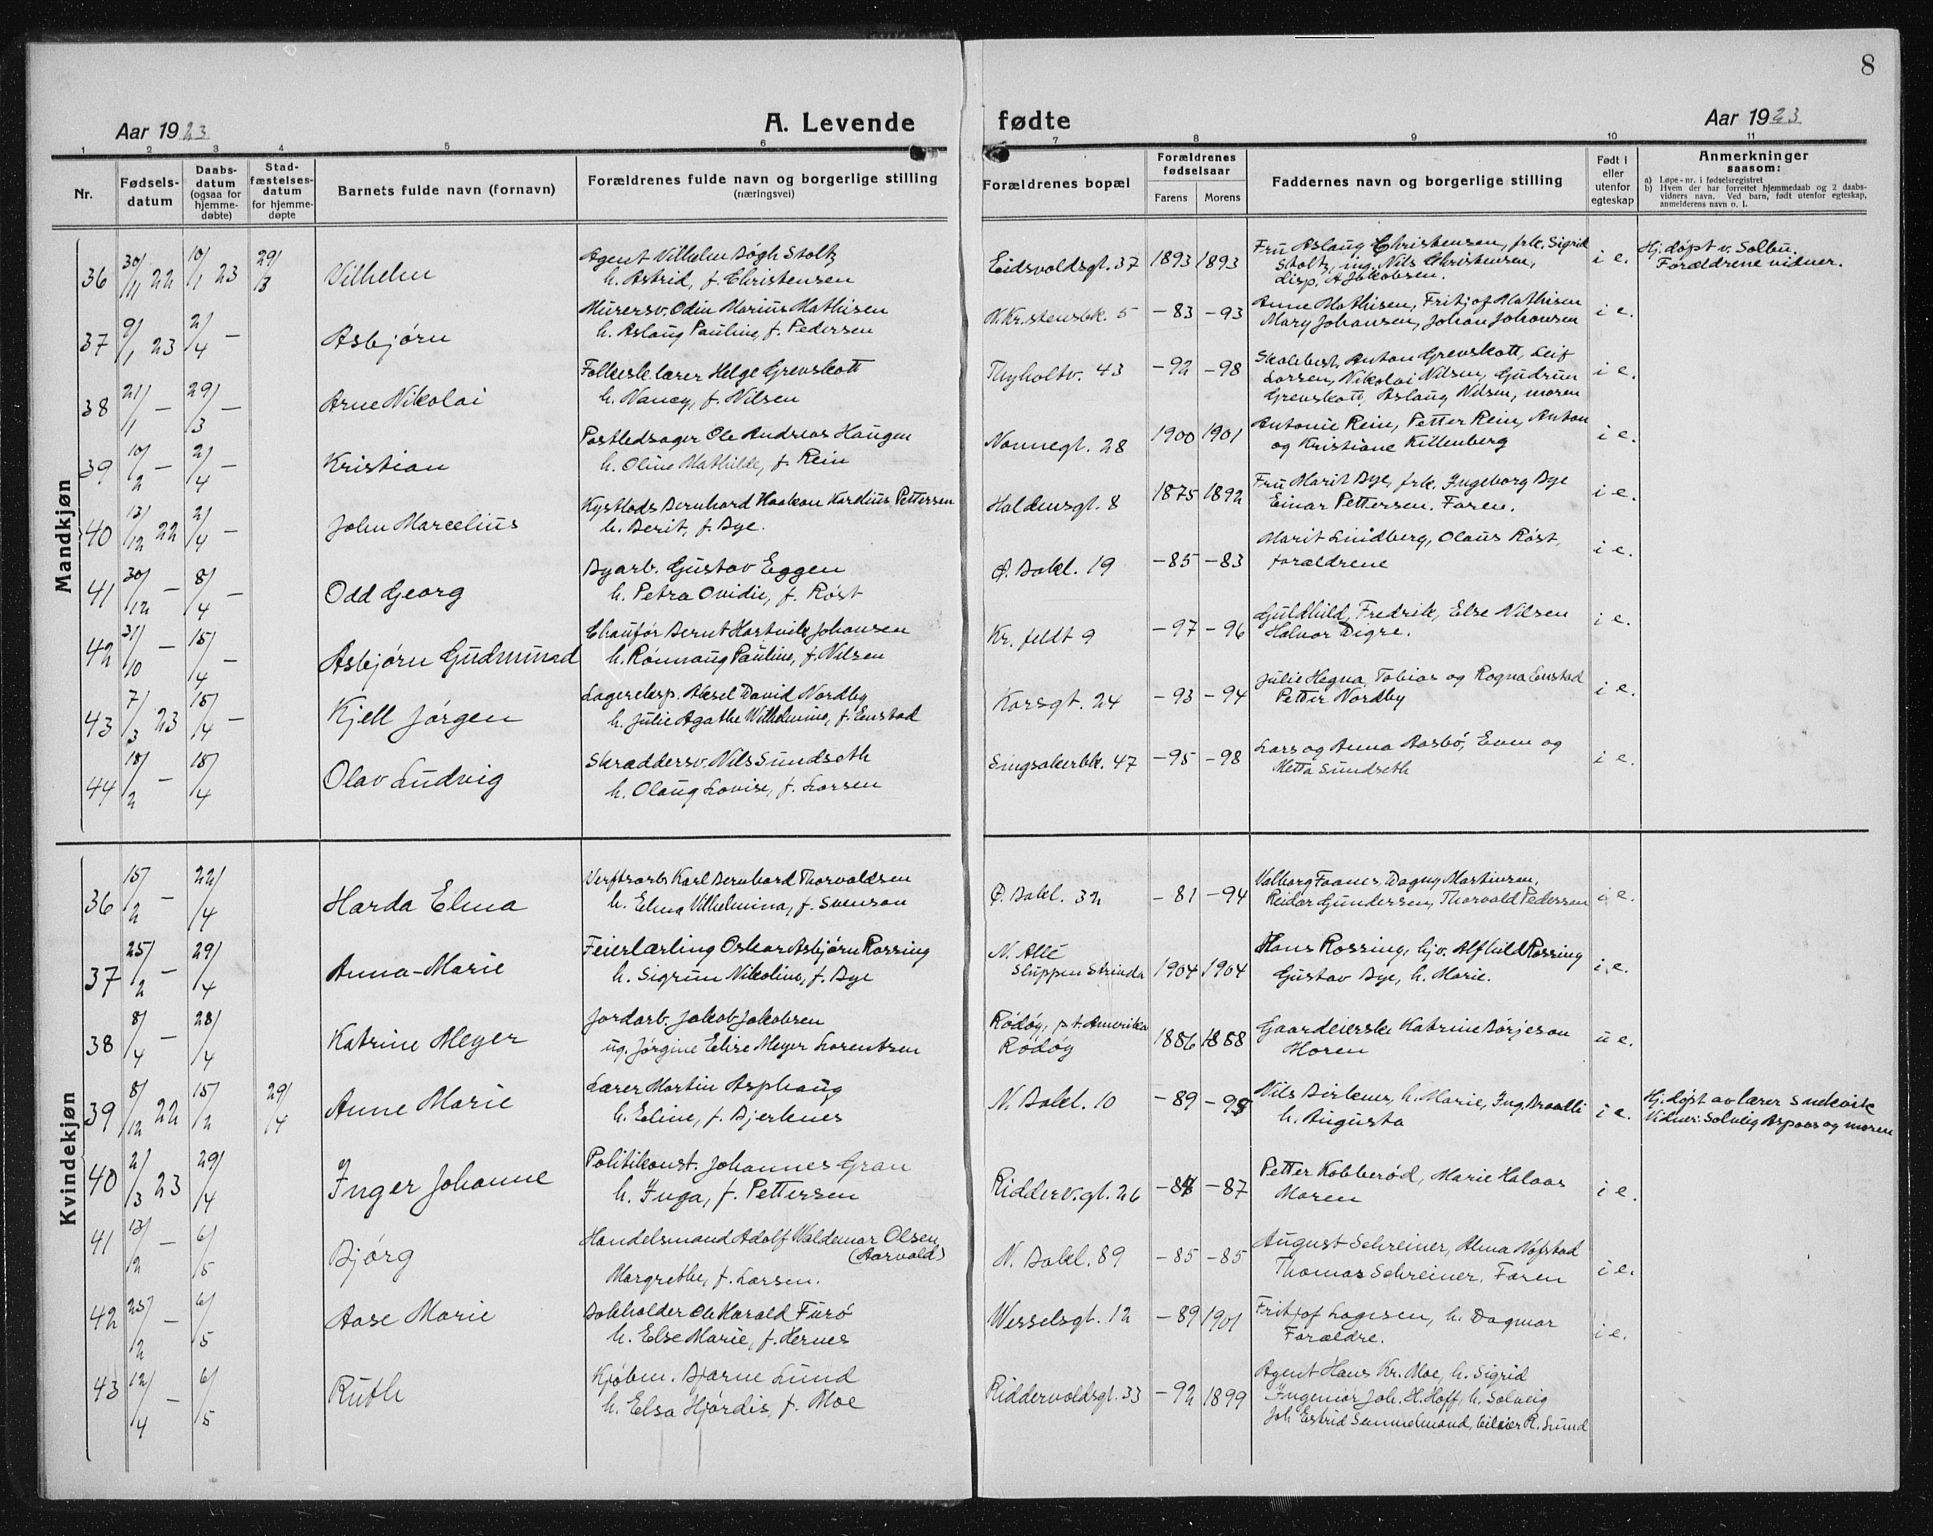 8
Aar 1923
A. Levende
fødte
Aar 1923
1 2 3 4 5 6 7 8 9 10 11
Nr.
Fødsels-
datum
Daabs-
datum
(ogsaa for
hjemme-
døbte)
Stad-
fæstelses-
datum
for hjemme-
døpte
Barnets fulde navn (fornavn)
Forældrenes fulde navn og borgerlige stilling
(næringsvei)
Forældrenes bopæl
Forældrenes
fødselsaar
Farens
Morens
Faddernes navn og borgerlige stilling
Født i
eller
utenfor
egteskap
Anmerkninger
saasom:
a) Løpe-nr. i fødselsregistret
b) Hvem der har forrettet hjemmedaab og 2 daabs-
vidners navn. Ved barn, født utenfor egteskap,
anmelderens navn o. l.
Mandkjøn
36 30/11 22 10/1 23 29/3 Vilhelm
Agent Vilhelm Bøgh Stoltz
h. Astrid, f. Christensen
Eidsvoldsgt. 37 1893 1893
Fru Aslaug Christensen, frk. Sigrid
Stoltz, ing. Nils Christensen,
Disp. A Jakobsen.
i e.
Hj. døpt v. Solbu.
Forældrene vidner.
37 9/1 23 2/4 — Asbjørn
Murersv. Odin Marius Mathisen
h. Aslaug Pauline, f. Pedersen
N. Kristensbk. 5 —83 —93
Anne Mathisen, Fritjof Mathisen
Mary Johansen, Johan Johansen
i e.
38 21/1 — 29/3 — Arne Nikolai
Folkesk. lærer Helge Grevskott
h. Nancy, f. Nilsen
Thyholtv. 43 —92 —98
Skolebest. Anton Grevskott, Leif
Larsen, Nikolai Nilsen, Gudrun
Grevskott, Aslaug Nilsen, moren
i e.
39 10/2 — 2/4 — Kristian
Postledsager Ole Andreas Haugen
h. Oline Mathilde, f. Rein
Nonnegt. 28 1900 1901
Antonie Rein, Petter Rein, Anton
og Kristiane Killenberg
i e.
40 13/12 22 2/4 — John Marcelius
Kystlods Bernhard Haakon Karelius Pettersen
h. Berit, f. Bye.
Haldensgt. 8 1875 1892
Fru Marit Bye, frk. Ingeborg Bye
Einar Pettersen. Faren.
i e.
41 30/12 — 8/4 — Odd Georg
Byarb. Gustav Eggen
h. Petra Ovidie, f. Røst
Ø. Bakl. 19 —85 —83
Marit Lindberg, Olaus Røst,
forældrene
i e.
42 31/10 — 15/4 — Asbjørn Gudmund
Chaufør Bernt Hartvik Johansen
h. Rønnaug Pauline, f. Nilsen
Kr. feldt 9 —97 —96
Guldhild, Fredrik, Else Nilsen
Halvor Digre.
i e.
43 7/3 23 15/4 — Kjell Jørgen
Lagereksp. Aksel David Nordby
h. Julie Agathe Wilhelmine, f. Enstad
Korsgt. 24 —93 —94
Julie Hegna, Tobias og Ragna Enstad
Petter Nordby
i e.
44 18/2 — 15/4 Olav Ludvig
Skræddersv. Nils Sundseth
h. Olaug Lovise, f. Larsen
Singsakerbk. 47 —95 —98
Lars og Anna Aasbø, Even og
Metta Sundseth
i e.
Kvindekjøn
36 15/2 — 22/4 Harda Elma
Verftsarb. Karl Bernhard Thorvaldsen
h. Elma Vilhelmina, f. Svenson
Ø. Bakl. 32 —81 —94
Valborg Faanes, Dagny Martinsen,
Reidar Gundersen, Thorvald Pedersen
i e.
37 25/2 — 29/4 Anna-Marie
Feierlærling Oskar Asbjørn Rossing
h. Sigrun Nikoline, f. Bye
N. Allé
Sluppen Strinda 1904 1904
Hans Rossing, hj.v. Alfhild Rossing
Gustav Bye, h. Marie.
i e.
38 8/4 — 28/4 Katrine Meyer
Jordarb. Jakob Jakobsen
ug. Jørgine Elise Meyer Lorentzen
Rødøy, p.t. Amerika
Rødøy 1886 1888
Gaardeierske Katrine Børjeson
Moren
u e.
39 8/12 22 15/2 29/4 Anne Marie
Lærer Martin Asphaug
h. Eline, f. Bjerknes
N. Bakl. 10 —89 —95
Nils Birknes, h. Marie, Ing. Braadli
h. Augusta
i e.
Hj. døpt av lærer Sandvik
Vidner: Solveig Aspaas og moren
40 2/3 23 29/4 Inger Johanne
Politikonst. Johannes Gran
h. Inga, f. Pettersen
Riddervgt. 26 —87
Petter Kobberød, Marie Halaas
Moren
i e.
41 13/2 — 6/5 Bjørg
Handelsmand Adolf Valdemar Olsen
(Aarvold)
Margrethe, f. Larsen.
N. Bakl. 89 —85 —85
August Schreiner, Alma Hofstad
Thomas Schreiner. Faren
i e.
42 25/2 — 6/5 Aase Marie
Bokholder Ole Harald Furø
h. Else Marie, f. Hernes
Wesselsgt. 12 —89 1901
Fritjof Lagesen, h. Dagmar
Forældre.
i e.
43 12/4 — 6/5 Ruth
Kjøbm. Bjarne Lund
h. Elsa Hjørdis, f. Moe
Riddervoldsgt. 33 —92 1899
Agent Hans Kr. Moe, h. Sigrid
Ingeniør Joh. H. Hoff, h. Solveig
Joh Estrid Semmelmand, R. Lund